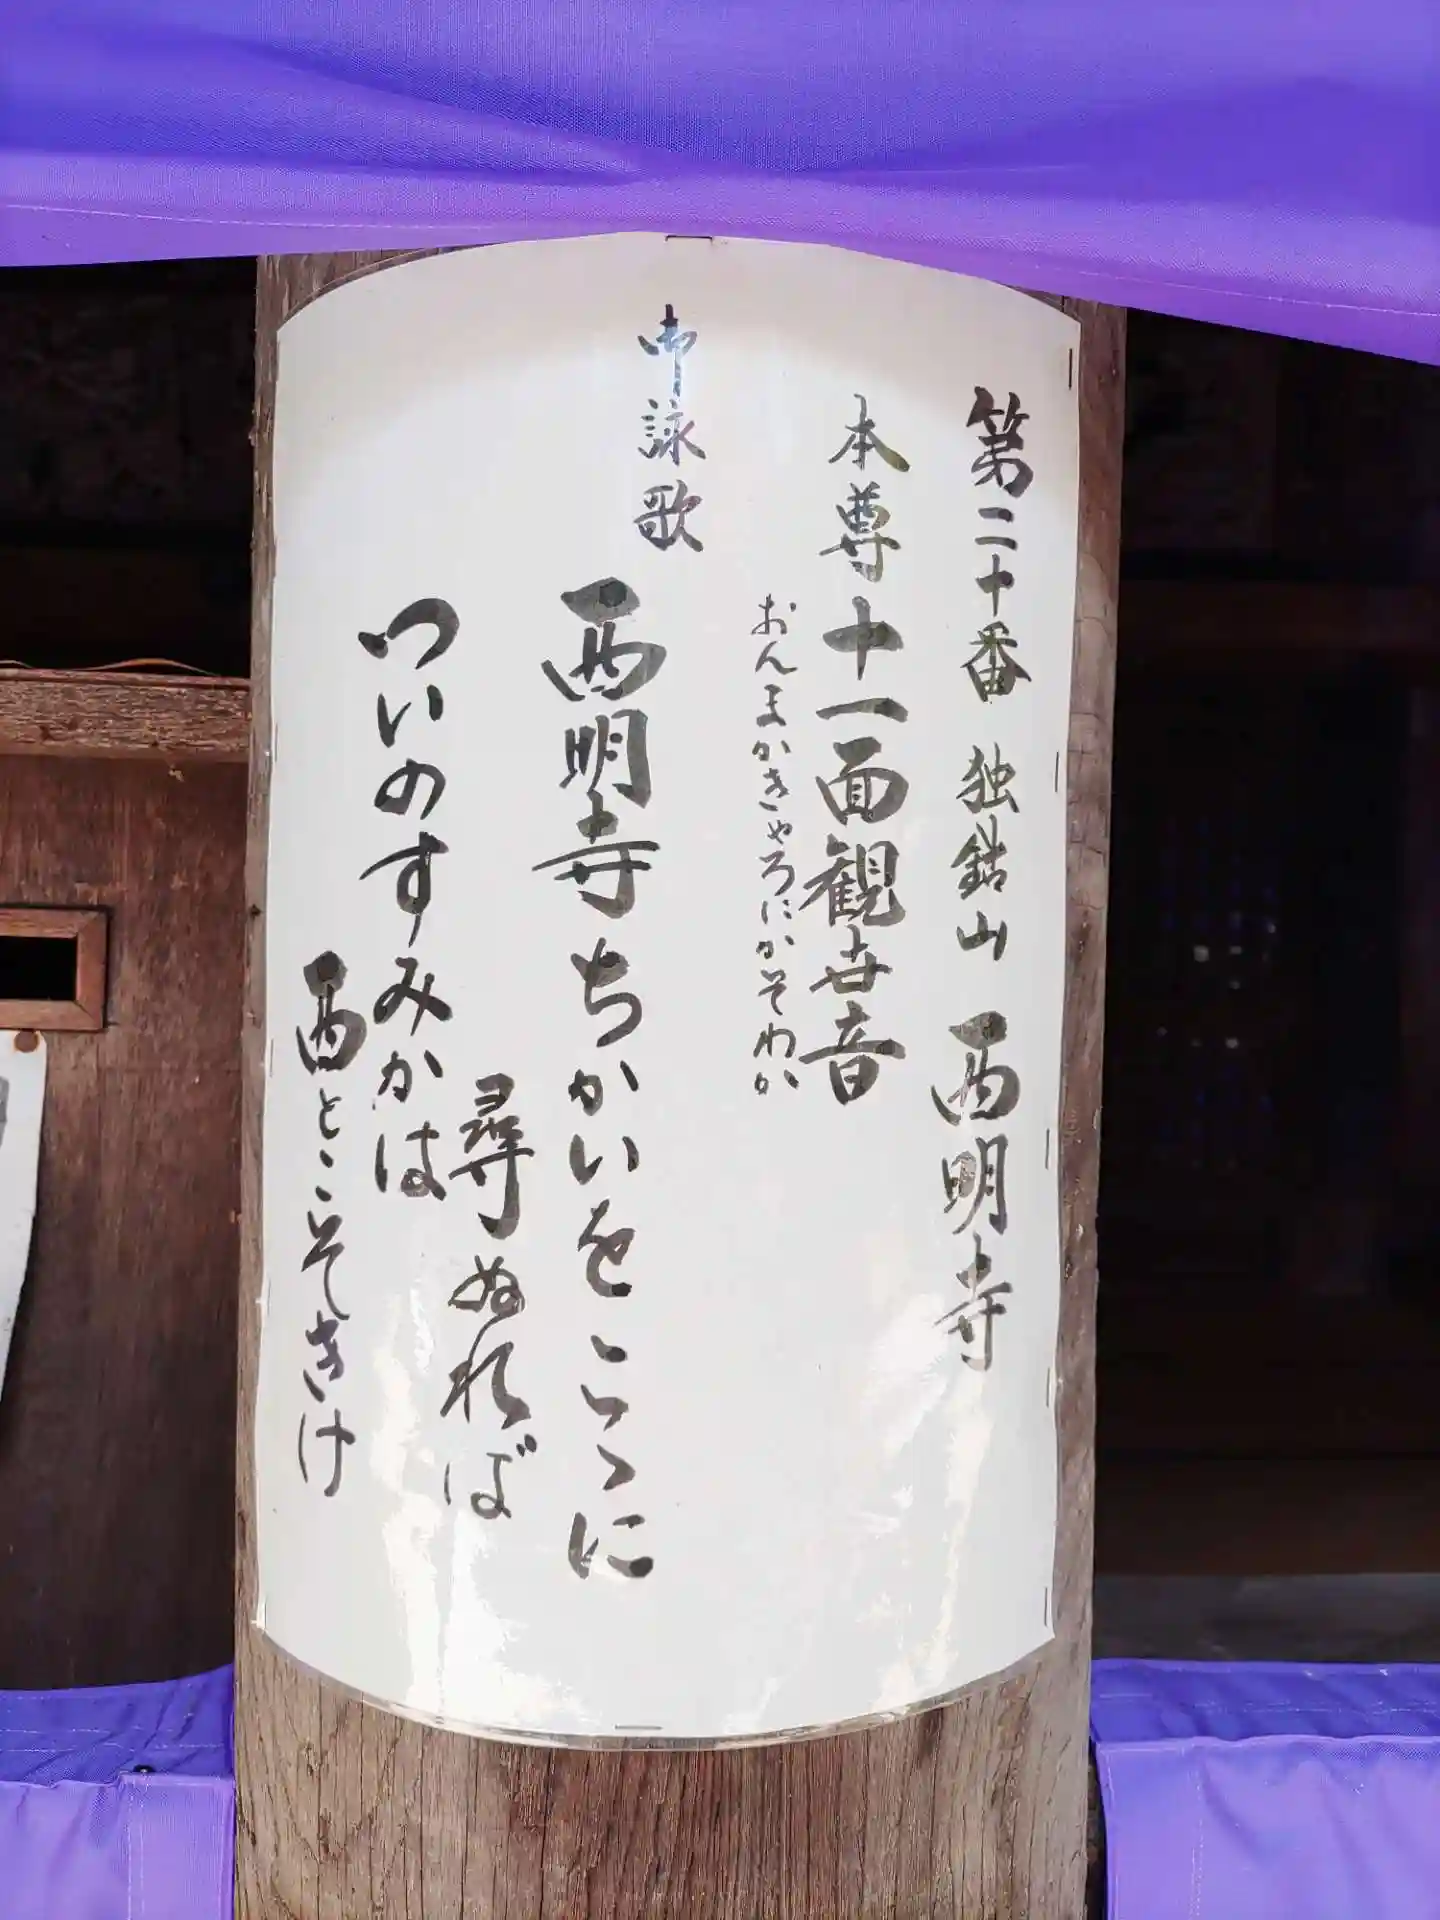 第二十番 独鈷山 西明寺
本尊十一面観世音
おんまかきゃろにかそわか
御詠歌
西明寺ちかいをこゝに
尋ぬれば
ついのすみかは
西とこそきけ